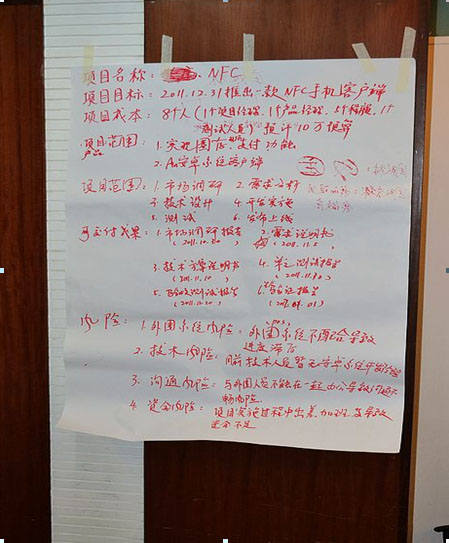 项目名称： NFC
项目目标：2011.12.31推出一款NFC手机客户端
项目成本：8个人(1个项目经理、1个产品经理、5个程序、1个
测试人员) 预计10万预算
项目范围：1.实现圈存、支付功能
产品
2.安卓系统客户端
项目范围：1.市场调研 2.需求分析
3.技术设计 4.开发实施
5.测试 6.发布上线
可交付成果：1.市场调研报告 2.需求说明书
(2011.10.30) (2011.11.5)
3.技术方案说明书 4.单元测试报告
(2011.11.10) (2011.11.30)
5.验收测试报告 6.验证报告
(2011.12.20)
风险：1.外围系统风险：外围系统不配合导致
进度滞后
2.技术风险：目前技术人员暂无安卓系统开发经验
3.沟通风险：与外围人员不能在一起办公导致沟通不
畅风险.
4.资金风险：项目实施过程中出差、加班等导致
资金不足